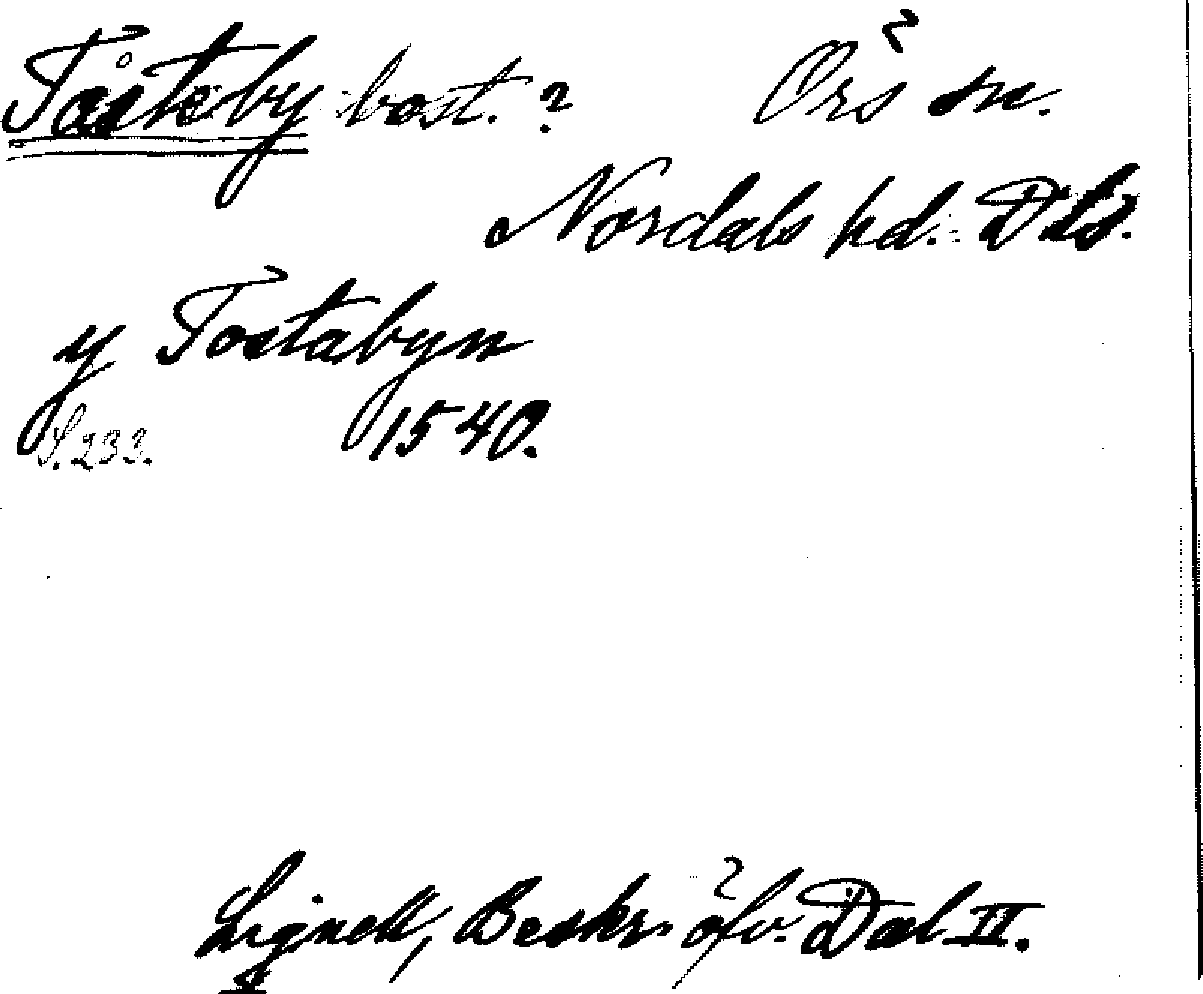 Tåsteby bost.? Örs sn.
Nordals hd. Dls.
y Tostabyn
S. 233. 1540.
Lignell, Beskr. öfv. Dal II.